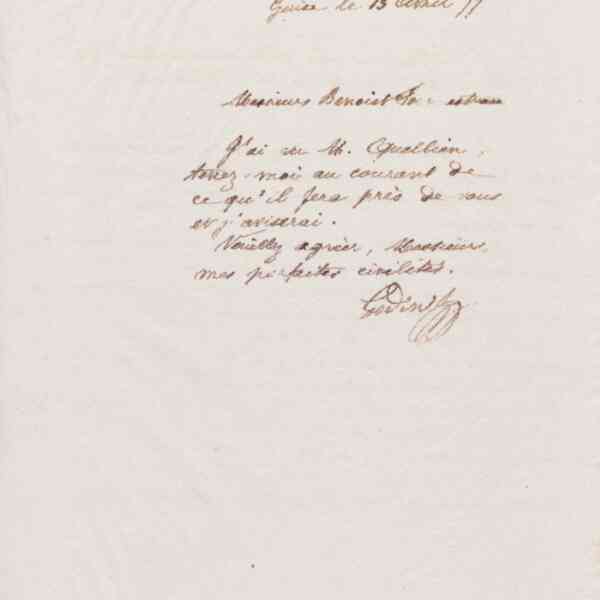 Guise le 13 Avril 77
Messieurs Benoist
J'ai vu M. Quellien,
tenez-moi au courant de
ce qu'il fera près de vous
et j'aviserai.
Veuillez agréer, Messieurs,
mes parfaites civilités.
Godin